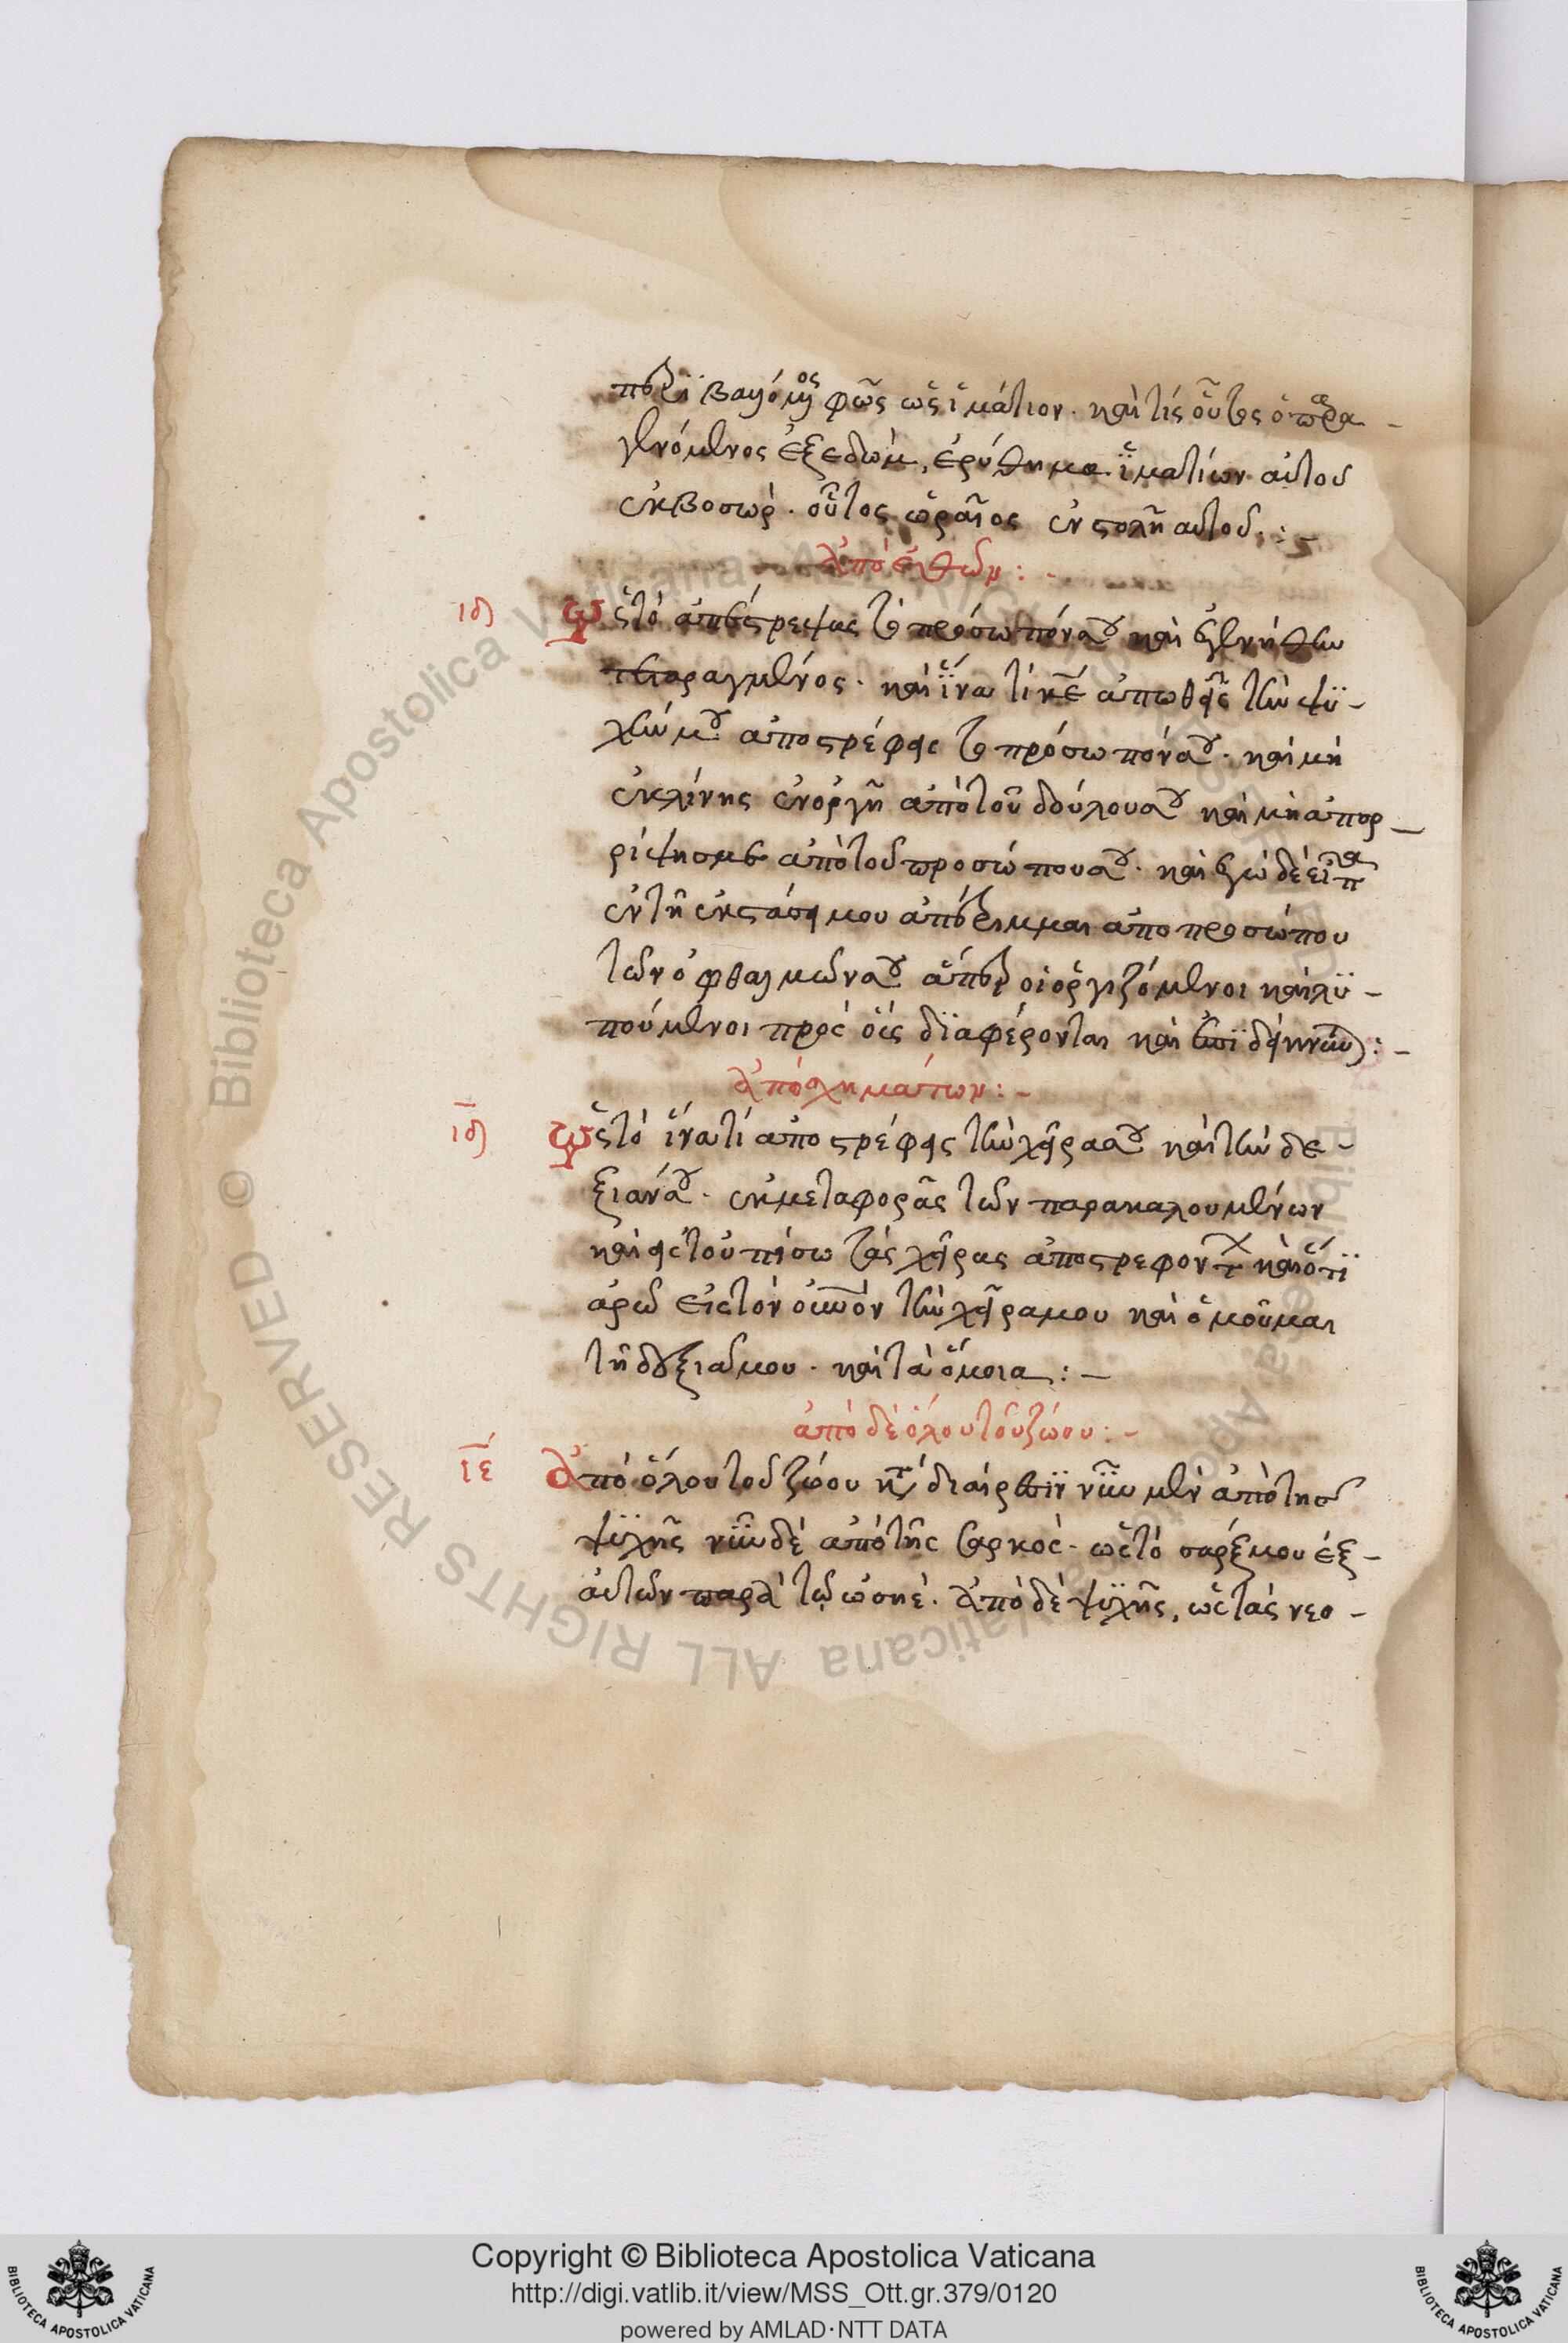 περϊβαλόμενος φῶς ὡς ἱμάτιον. καὶ τίς οὗτος ὁ παρα-
γενόμενος ἐξ ἐδὼμ, ἐρύθημα ἱματίων αὐτοῦ
ἐκ βοσὼρ. οὗτος ὡραῖος ἐν στολῆ αὐτοῦ. :-
ἀπὸ ἐθῶν: -
ιδ Ὡς τὸ ἀπέστρεψας τὸ πρόσωπόν σου καὶ ἐγενήθην
τεταραγμένος. καὶ ἵνα τί κε ἀπωθεῖς τὴν ψϋ-
χήν μου ἀποστρέφεις τὸ πρόσωπόν σου. καὶ μὴ
ἐκκλίνης ἐν ὀργῆ ἀπὸ τοῦ δούλου σου καὶ μὴ ἀπορ-
ρίψης με ἀπὸ τοῦ προσώπου σου. καὶ ἐγὼ δὲ εἶπα
ἐν τῆ ἐκστάσει μου ἀπέρριμμαι ἀπο προσώπου
τῶν ὀφθαλμῶν σου ἅπερ οἱ ὀργιζόμενοι καὶ λϋ-
πούμενοι πρὸς οὓς δϊαφέρονται καὶ
ἀπὸ σχημάτων: -
ιδ Ὡς τὸ ἵνα τί ἀποστρέφεις τὴν χεῖρα σου καὶ τὴν δε-
ξιάν σου. ἐκ μεταφορᾶς τῶν παρακαλουμένων
καὶ εἰς τοὐπίσω τὰς χεῖρας ἀποστρεφόντων καὶ ὅτι
ἀρῶ εἰς τὸν οὐνὸν τὴν χεῖρα μου καὶ ὁμοῦμαι
τῆ δεξιᾶ μου. καὶ τὰ ὅμοια: -
ἀπὸ δὲ ὅλου τοῦ ζώου: -
ιε Ἀπὸ ὅλου τοῦ ζώου κατὰ διαίρεσιν νῦν μὲν ἀπὸ τῆς
ψϋχῆς νῦν δὲ ἀπὸ τῆς σαρκὸς. ὡς τὸ σάρξ μου ἐξ-
αὐτῶν παρὰ τῷ ὠσηέ. ἀπὸ δὲ ψϋχῆς, ὡς τὰς νεο-
Copyright © Biblioteca Apostolica Vaticana
http://digi.vatlib.it/view/MSS_Ott.gr.379/0120
powered by AMLAD·NTT DATA
BIBLIOTECA APOSTOLICA VATICANA
BIBLIOTECA APOSTOLICA VATICANA
Biblioteca Apostolica Vaticana ALL RIGHTS RESERVED ©